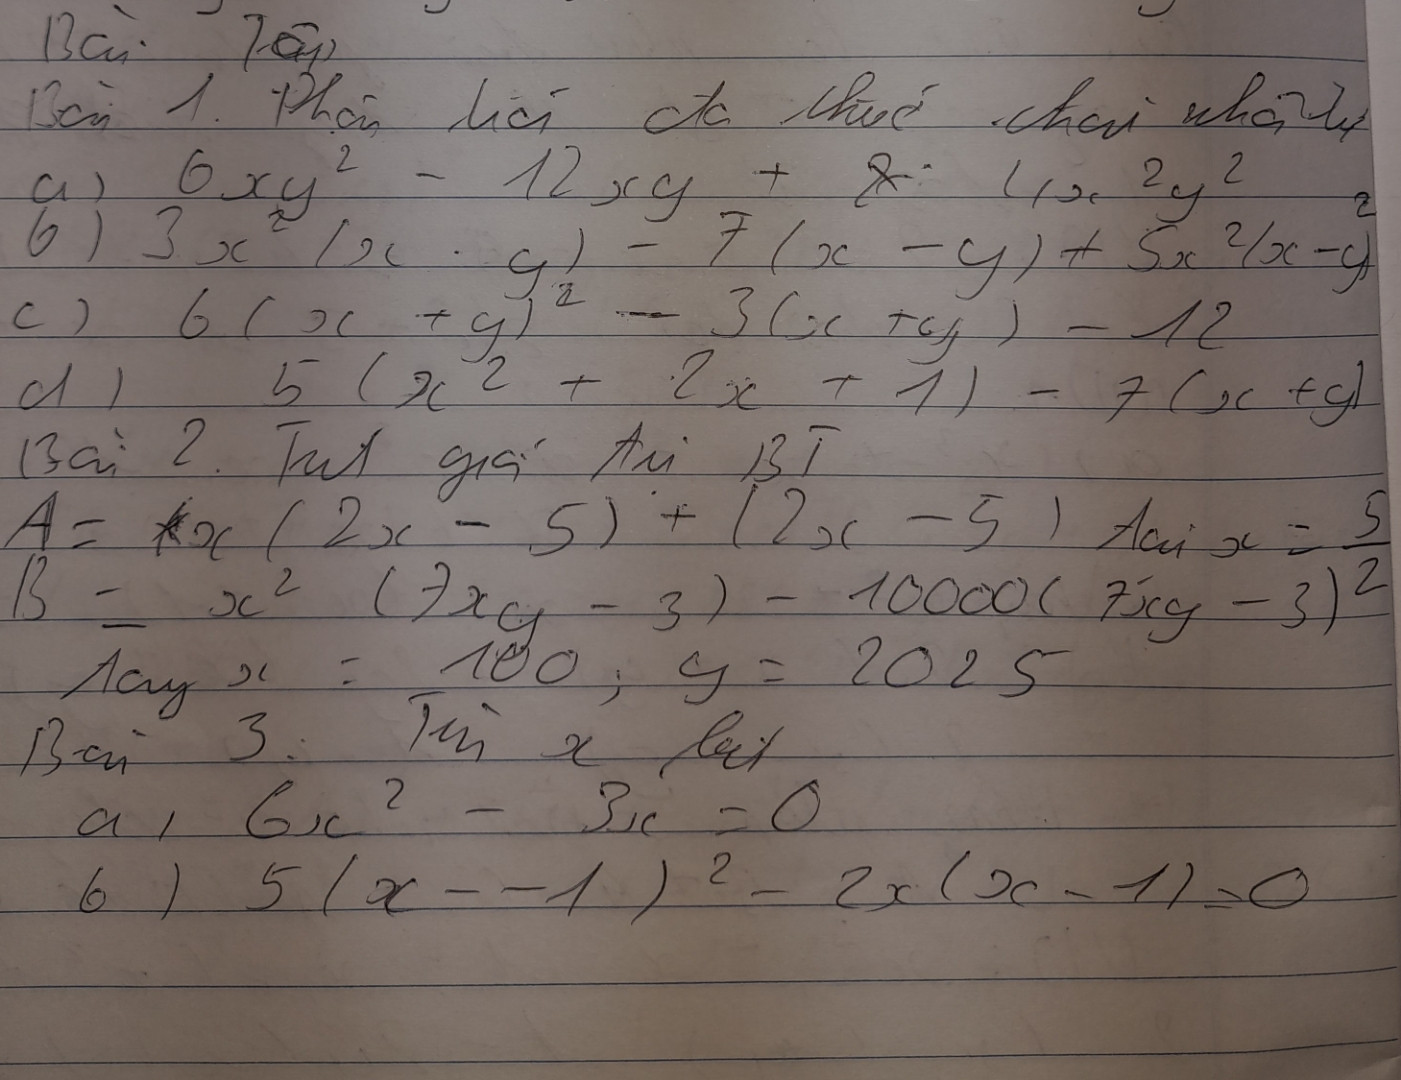 Bài Tập
Bài 1. Phân tích đa thức thành nhân tử
a) 6xy² - 12xy + 4x²y²
b) 3x² (x - y) - 7 (x - y) + 5x² (x - y)²
c) 6 (x + y)² - 3 (x + y) - 12
d) 5 (x² + 2x + 1) - 7 (x + y)
Bài 2. Tính giá trị BT
A = x (2x - 5) + (2x - 5) tại x = 5/2
B = x² (7xy - 3) - 10000 (7xy - 3)²
x = 100 ; y = 2025
Bài 3. Tìm x biết
a, 6x² - 3x = 0
b) 5 (x - - 1)² - 2x (x - 1) = 0